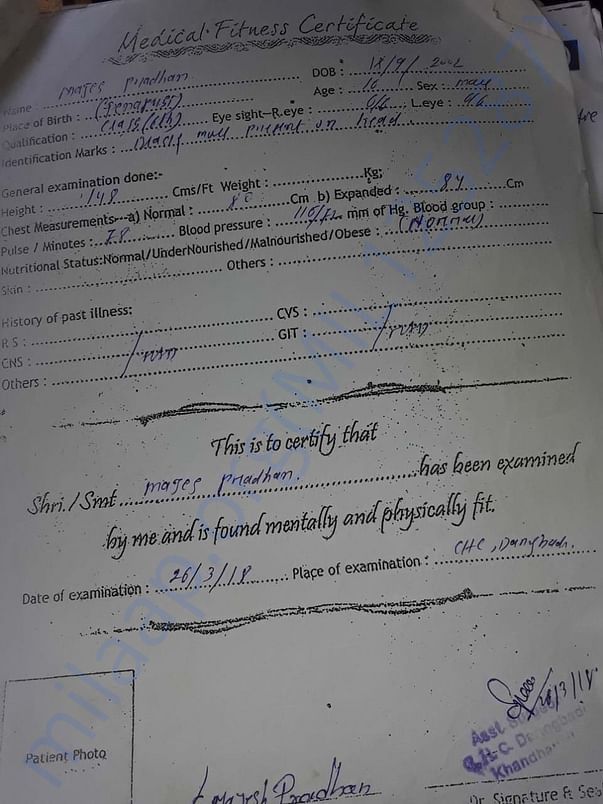 Medical Fitness Certificate
Name : Majes Pradhan DOB : 18/9/2002
Place of Birth : Age : 16 Sex : male
Qualification : Class Eye sight-R.eye : 6/6 L.eye : 6/6
Identification Marks : Black present on head
General examination done:-
Height : 148 Cms/Ft Weight : Kg;
Chest Measurements---a) Normal : 80 Cm b) Expanded : 84 Cm
Pulse / Minutes : 78 Blood pressure : 110/72 mm of Hg. Blood group :
Nutritional Status:Normal/UnderNourished/Malnourished/Obese : (Normal)
Skin : Others :
History of past illness:
R S : CVS :
CNS : GIT :
Others :
This is to certify that
Shri./Smt Majes Pradhan. has been examined
by me and is found mentally and physically fit.
Date of examination : 26/3/18 Place of examination : CHC, Daringbadi.
26/3/18
Asst.
C.H.C. Daringbadi
Patient Photo
Pradhan
Dr. Signature & Seal